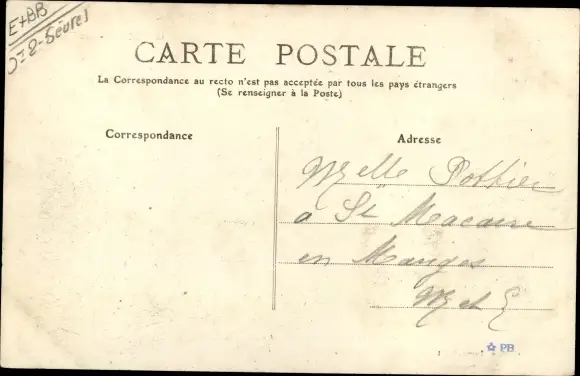 E+BB
Dt 2-Sèvres
CARTE POSTALE
La Correspondance au recto n'est pas acceptée par tous les pays étrangers
(Se renseigner à la Poste)
Correspondance
Adresse
Melle Pottier
a St Macaire
en Mauges
M et L
PB